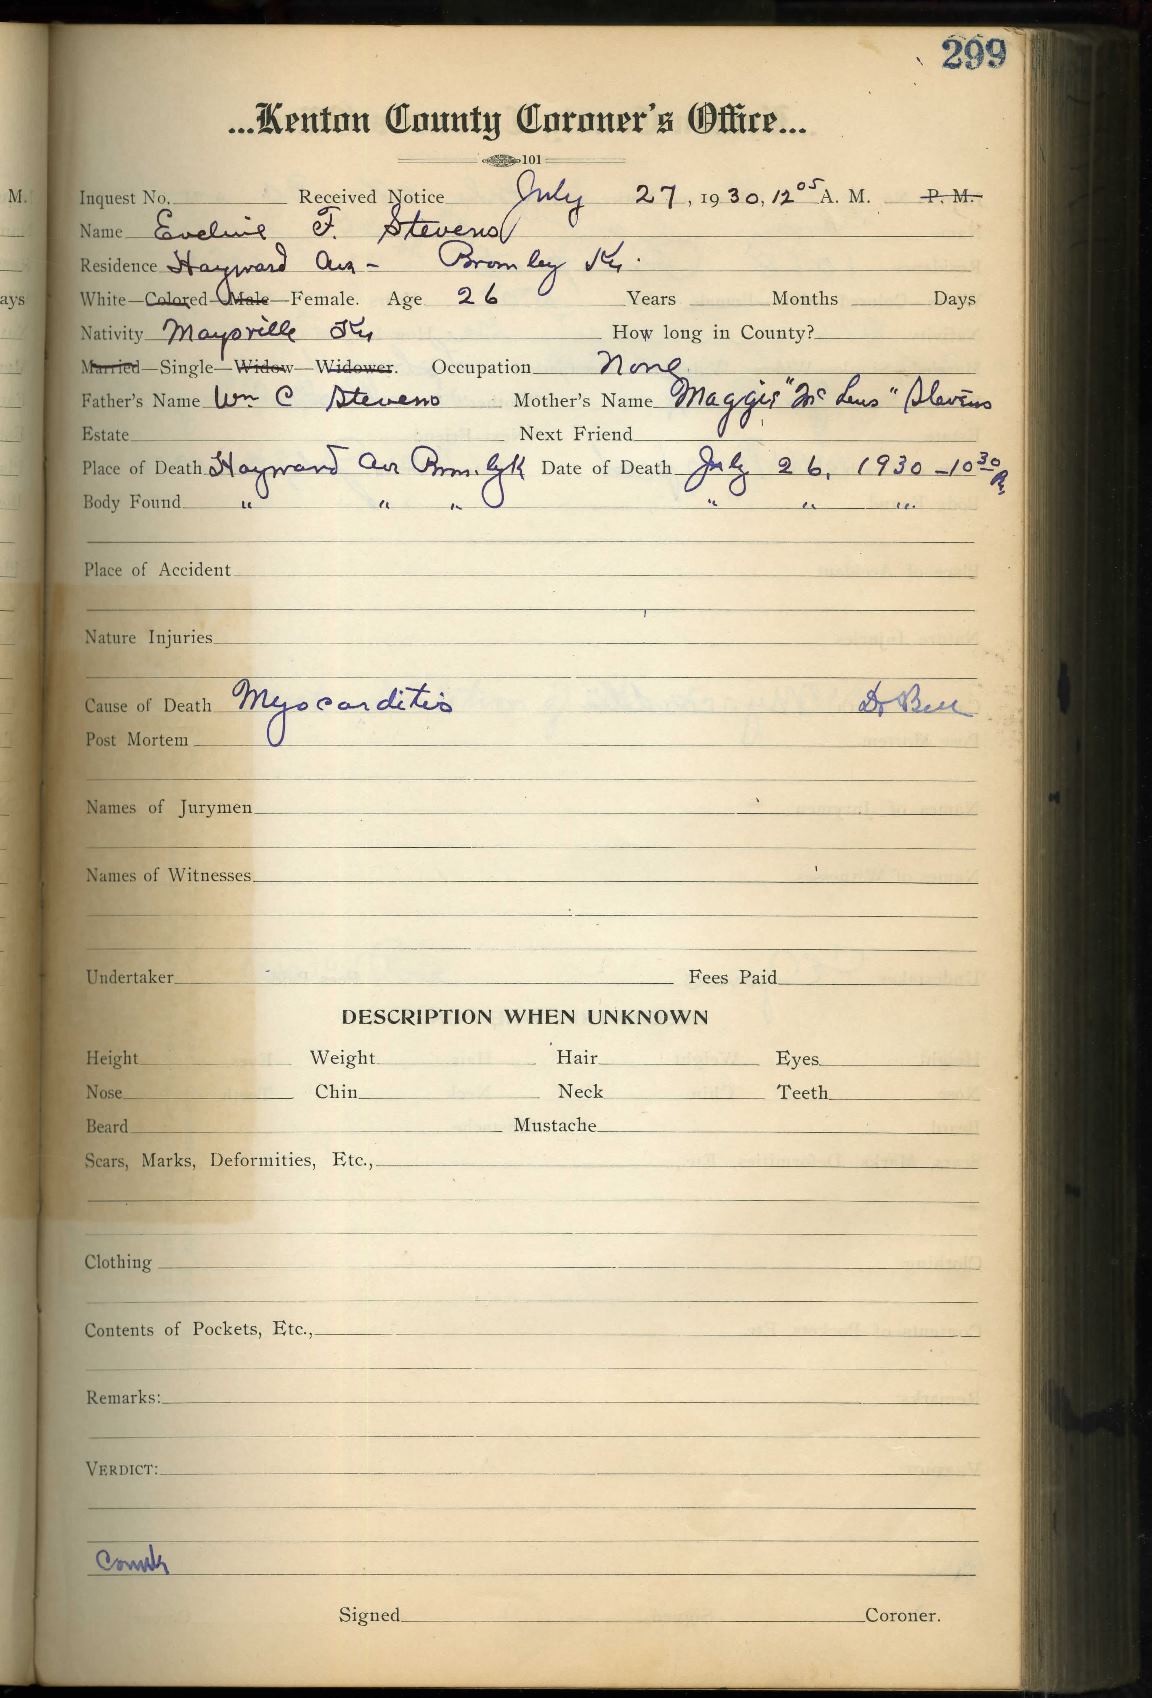 299
...Kenton County Coroner's Office...
101
M. Inquest No. Received Notice July 27, 1930, 12 05 A. M. P. M.
Name Eveline F. Stevens
Residence Hayward Ave - Bromley Ky.
ays White—Colored—Male—Female. Age 26 Years Months Days
Nativity Maysville Ky How long in County?
Married—Single—Widow—Widower. Occupation None
Father's Name Wm C Stevens Mother's Name Maggie "Mc " Stevens
Estate Next Friend
Place of Death Hayward Ave Date of Death July 26, 1930 - 10 30 P.
Body Found " " " " " "
Place of Accident
Nature Injuries
Cause of Death Myocarditis Dr Bell
Post Mortem
Names of Jurymen
Names of Witnesses
Undertaker Fees Paid
DESCRIPTION WHEN UNKNOWN
Height Weight Hair Eyes
Nose Chin Neck Teeth
Beard Mustache
Scars, Marks, Deformities, Etc.,
Clothing
Contents of Pockets, Etc.,
Remarks:
VERDICT:
Signed Coroner.